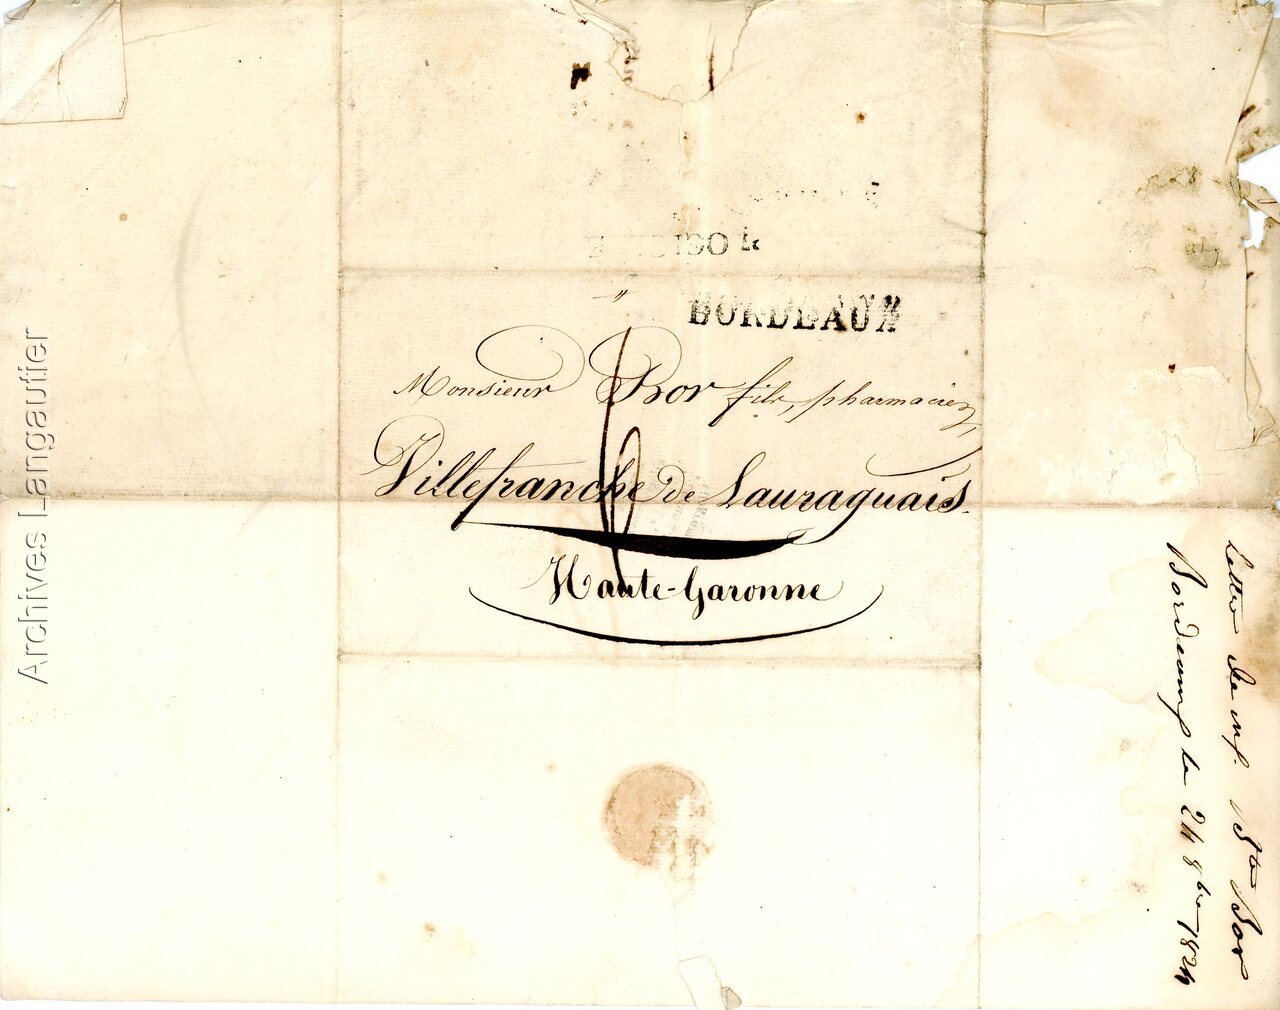 BORDEAUX
Monsieur Bor fils, pharmacien,
Villefranche de Lauraguais.
6
Haute-Garonne
Lettre de
Bor
Bordeaux le 24 8bre 1824
Archives Langautier